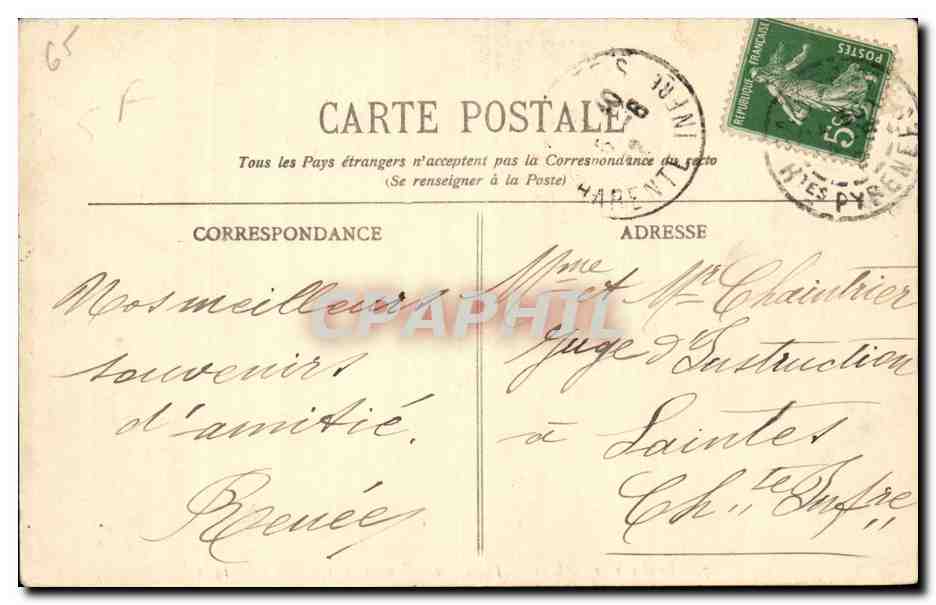 65
F
CARTE POSTALE
Tous les Pays étrangers n'acceptent pas la Correspondance au recto
(Se renseigner à la Poste)
REPUBLIQUE FRANÇAISE
POSTES
5c
INFRE
HARENTE
Htes PYRENEES
CORRESPONDANCE
Nos meilleurs
souvenirs
d'amitié.
Renée
ADRESSE
Mme et Mr Chaintrier
Juge d'Instruction
à Saintes
Chte Infre
CPAPHIL